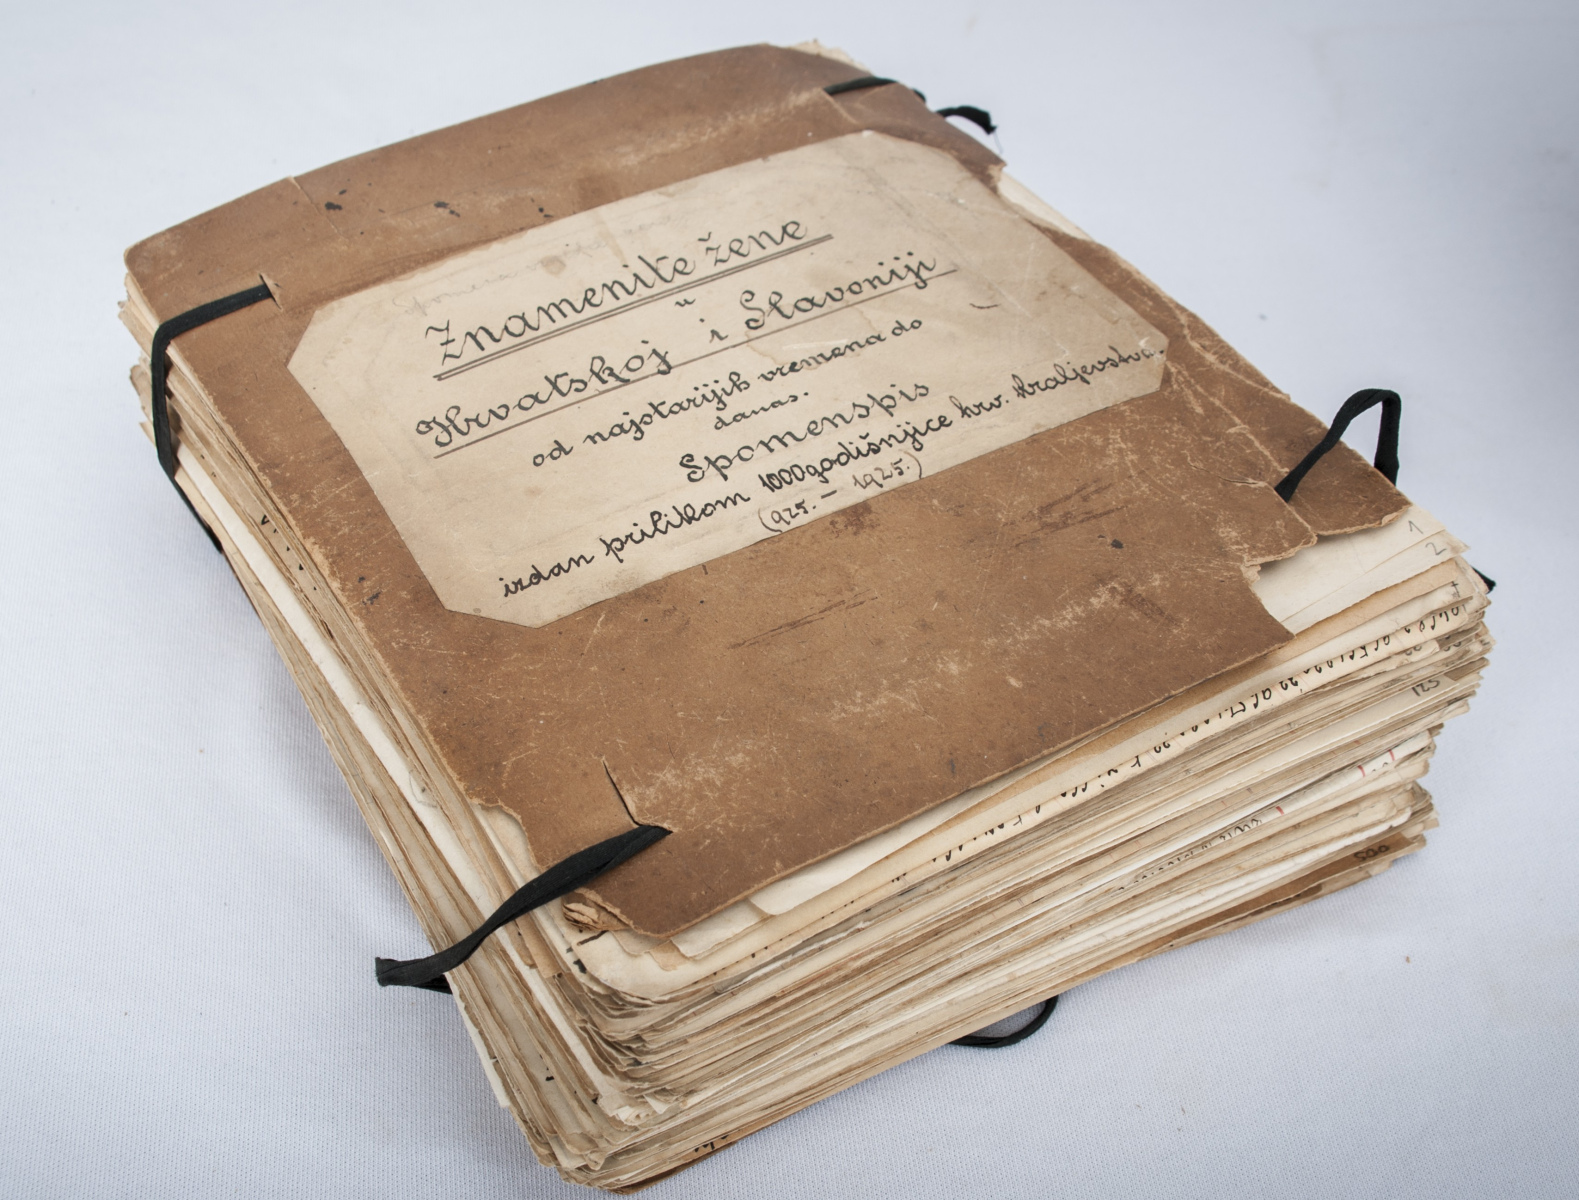 Znamenite žene
u
Hrvatskoj i Slavoniji
od najstarijih vremena do
danas.
Spomenspis
izdan prilikom 1000godišnjice hrv. kraljevstva.
(925. – 1925.)
1
2
125